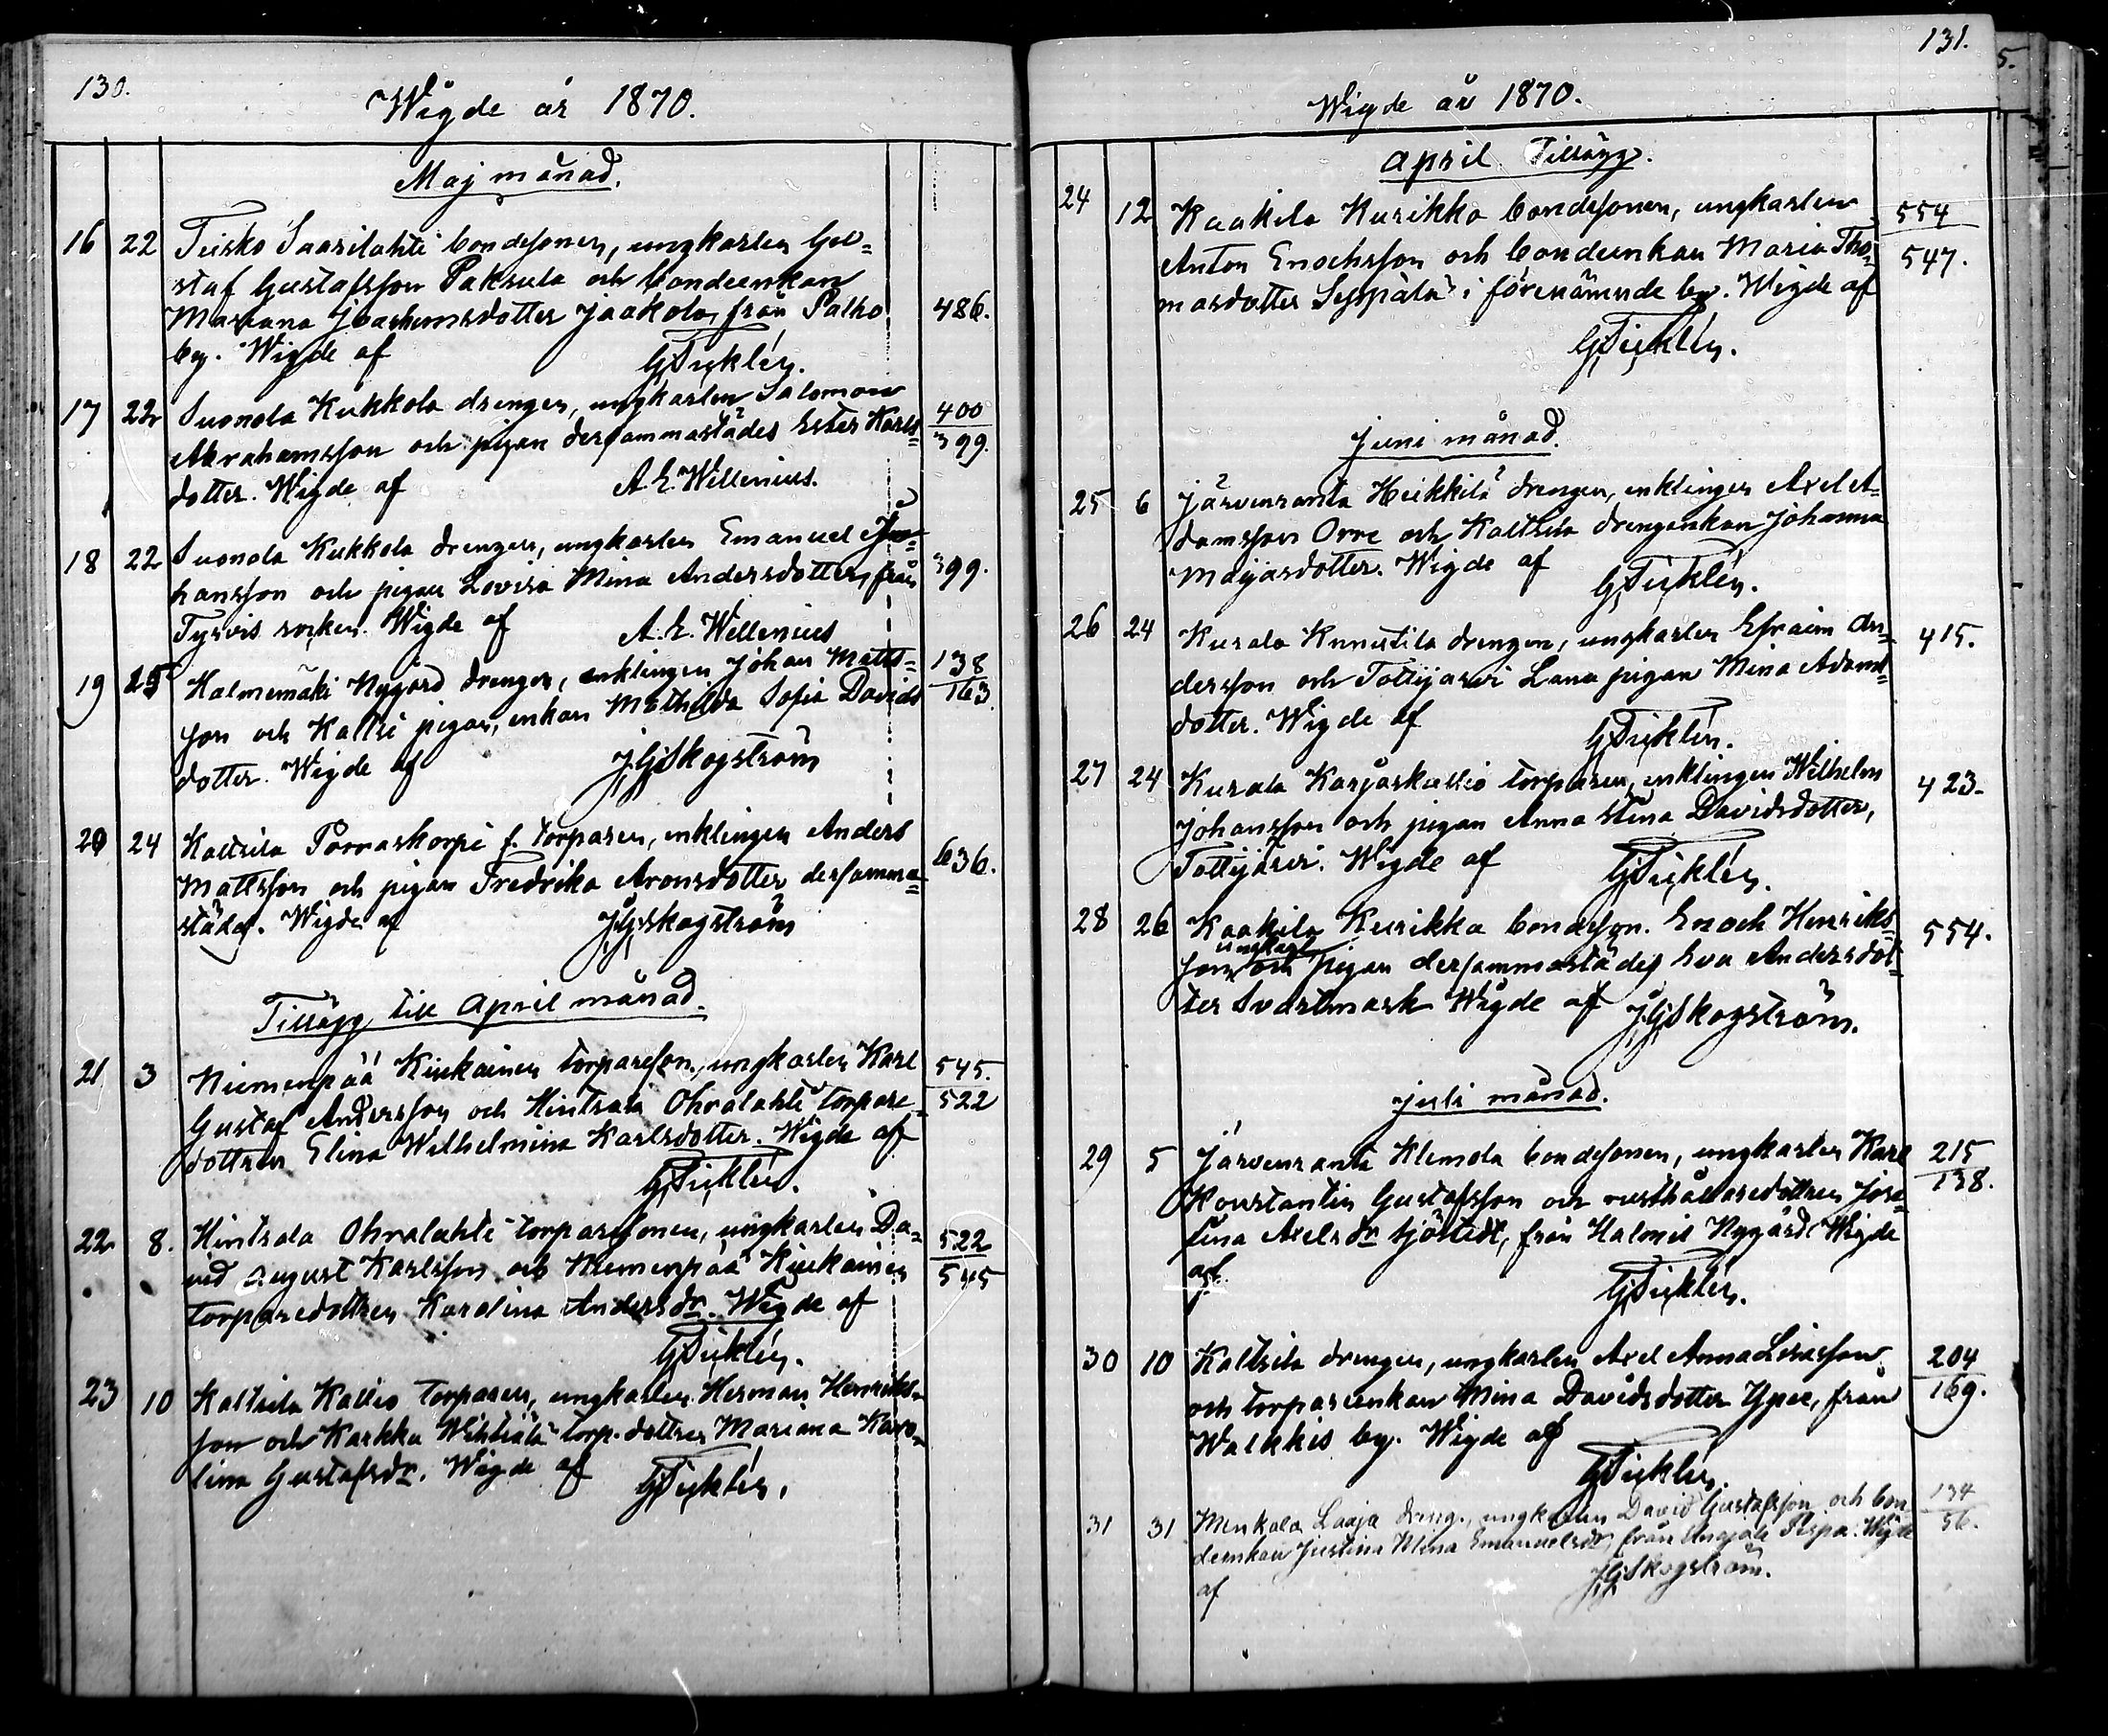 130.
Wigde år 1870.
Maj månad.
16 22 Tuisko Saarilahti bondesonen, ungkarlen Gu=
staf Gustafsson Paksula och bondeenkan
Mariana Joachimsdotter Jaakola, från Palho 486.
by. Wigde af GTicklén.
17 22 Suonola Kukkola drengen, ungkarlen Salomon 400
Abrahamsson och pigan dersammastädes Ester Karls= 399.
dotter. Wigde af A. E. Wellenius.
18 22 Suonola Kukkola drengen, ungkarlen Emanuel Jo=
hansson och pigan Lovisa Mina Andersdotter, från 399.
Tyrvis socken. Wigde af A. E. Wellenius
19 25 Halmemäki Nygård drengen, enklingen Johan Matts= 138
son och Kaltsi pigan, enkan Mathilda Sofia Davids 163.
dotter. Wigde af JGSkogström
20 24 Kaltsila Porraskorpi f. torparen, enklingen Anders
Mattsson och pigan Fredrika Aronsdotter dersamma= 636.
städes. Wigde af JGSkogström
Tillägg till April månad.
21 3 Niemenpää Kiukainen torpareson, ungkarlen Karl 545.
Gustaf Andersson och Hintsala Ohralahti torpare= 522
dottren Elina Wilhelmina Karlsdotter. Wigde af
GTicklén.
22 8. Hintsala Ohralahti torparesonen, ungkarlen Da= 522
vid August Karlsson och Niemenpää Kiukainen 545
torparedottren Karolina Andersdr. Wigde af
GTicklén.
23 10 Kaltsila Kallio torparen, ungkarlen Herman Henriks=
son och Karkku torp. dottren Mariana Karo=
lina Gustafsdr. Wigde af GTicklén.
131.
Wigde år 1870.
April Tillägg.
24 12 Kaakila Kurikka bondesonen, ungkarlen 554
Anton Enochsson och bondeenkan Maria Tho= 547.
masdotter Seppälä i förenämnde by. Wigde af
GTicklén.
Juni månad.
25 6 Järvenranta Heikkilä drengen, enklingen Axel A=
damsson Orre och Kaltsila drengenkan Johanna
Majasdotter. Wigde af GTicklén.
26 24 Kurala Knuutila drengen, ungkarlen Efraim An= 415.
dersson och Tottijärvi Lana pigan Mina Adams=
dotter. Wigde af GTicklén.
27 24 Kurala Karjaskallio torparen, enklingen Wilhelm 423.
Johansson och pigan Anna Stina Davidsdotter,
Tottijärvi. Wigde af GTicklén.
28 26 Kaakila Kurikka bondeson. Enoch Henriks= 554.
ungkarl
son och pigan dersammastädes Eva Andersdot=
ter Svartmark Wigde af JGSkogström.
Juli månad.
29 5 Järvenranta Klemola bondesonen, ungkarlen Karl 215
Konstantin Gustafsson och rusthållaredottren Jose= 138.
fina Axelsdr Sjöstedt, från Halmis Nygård Wigde
af GTicklén.
30 10 Kaltsila drengen, ungkarlen Axel Anna Lisasson 204
och torpareenkan Mina Davidsdotter Ypee, från 169.
Walkkis by. Wigde af GTicklén.
31 31 Menkala Laaja dreng., ungkarlen David Gustafsson och bon= 134
deenkan Justina Mina Emanuelsdr, från Pispa. Wigde 56.
af JGSkogström.
5.